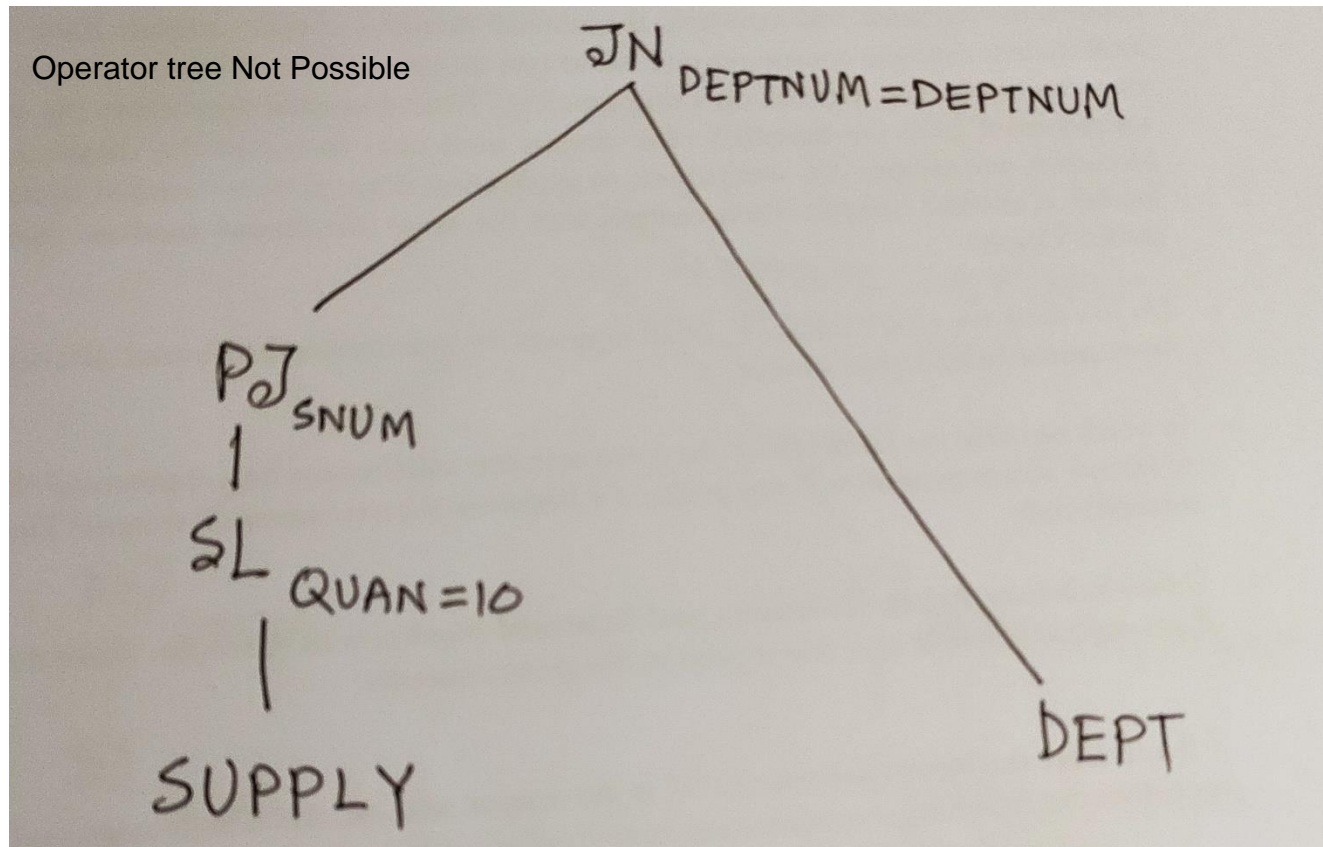 Operator tree Not Possible
JN DEPTNUM=DEPTNUM
PJ SNUM
SL QUAN=10
SUPPLY
DEPT